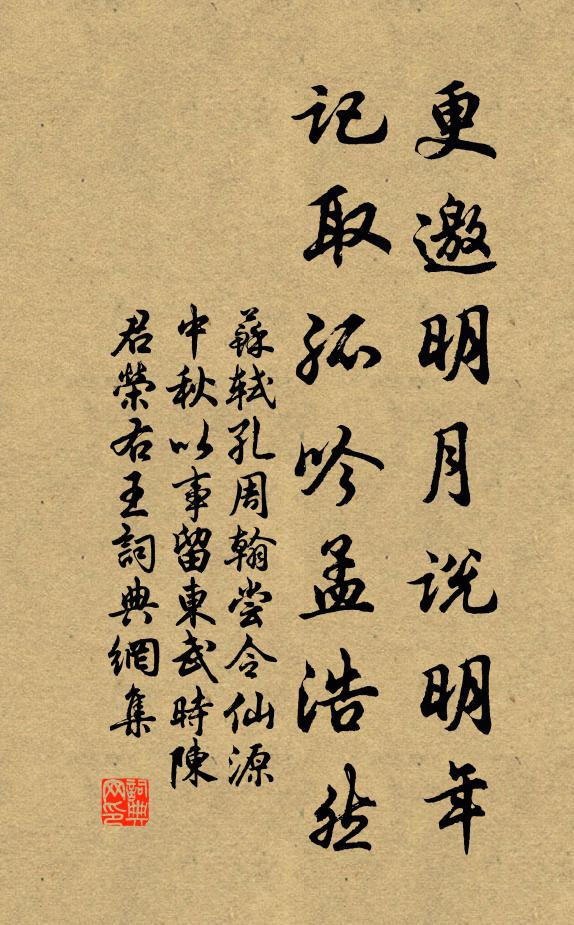 更邀明月說明年
記取孤吟孟浩然
蘇軾孔周翰嘗令仙源
中秋以事留東武時陳
君榮右王詞典網集
詞典网印